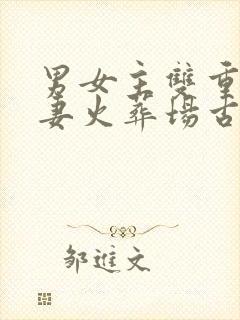 男女主雙重
妻火葬場古
邹進文